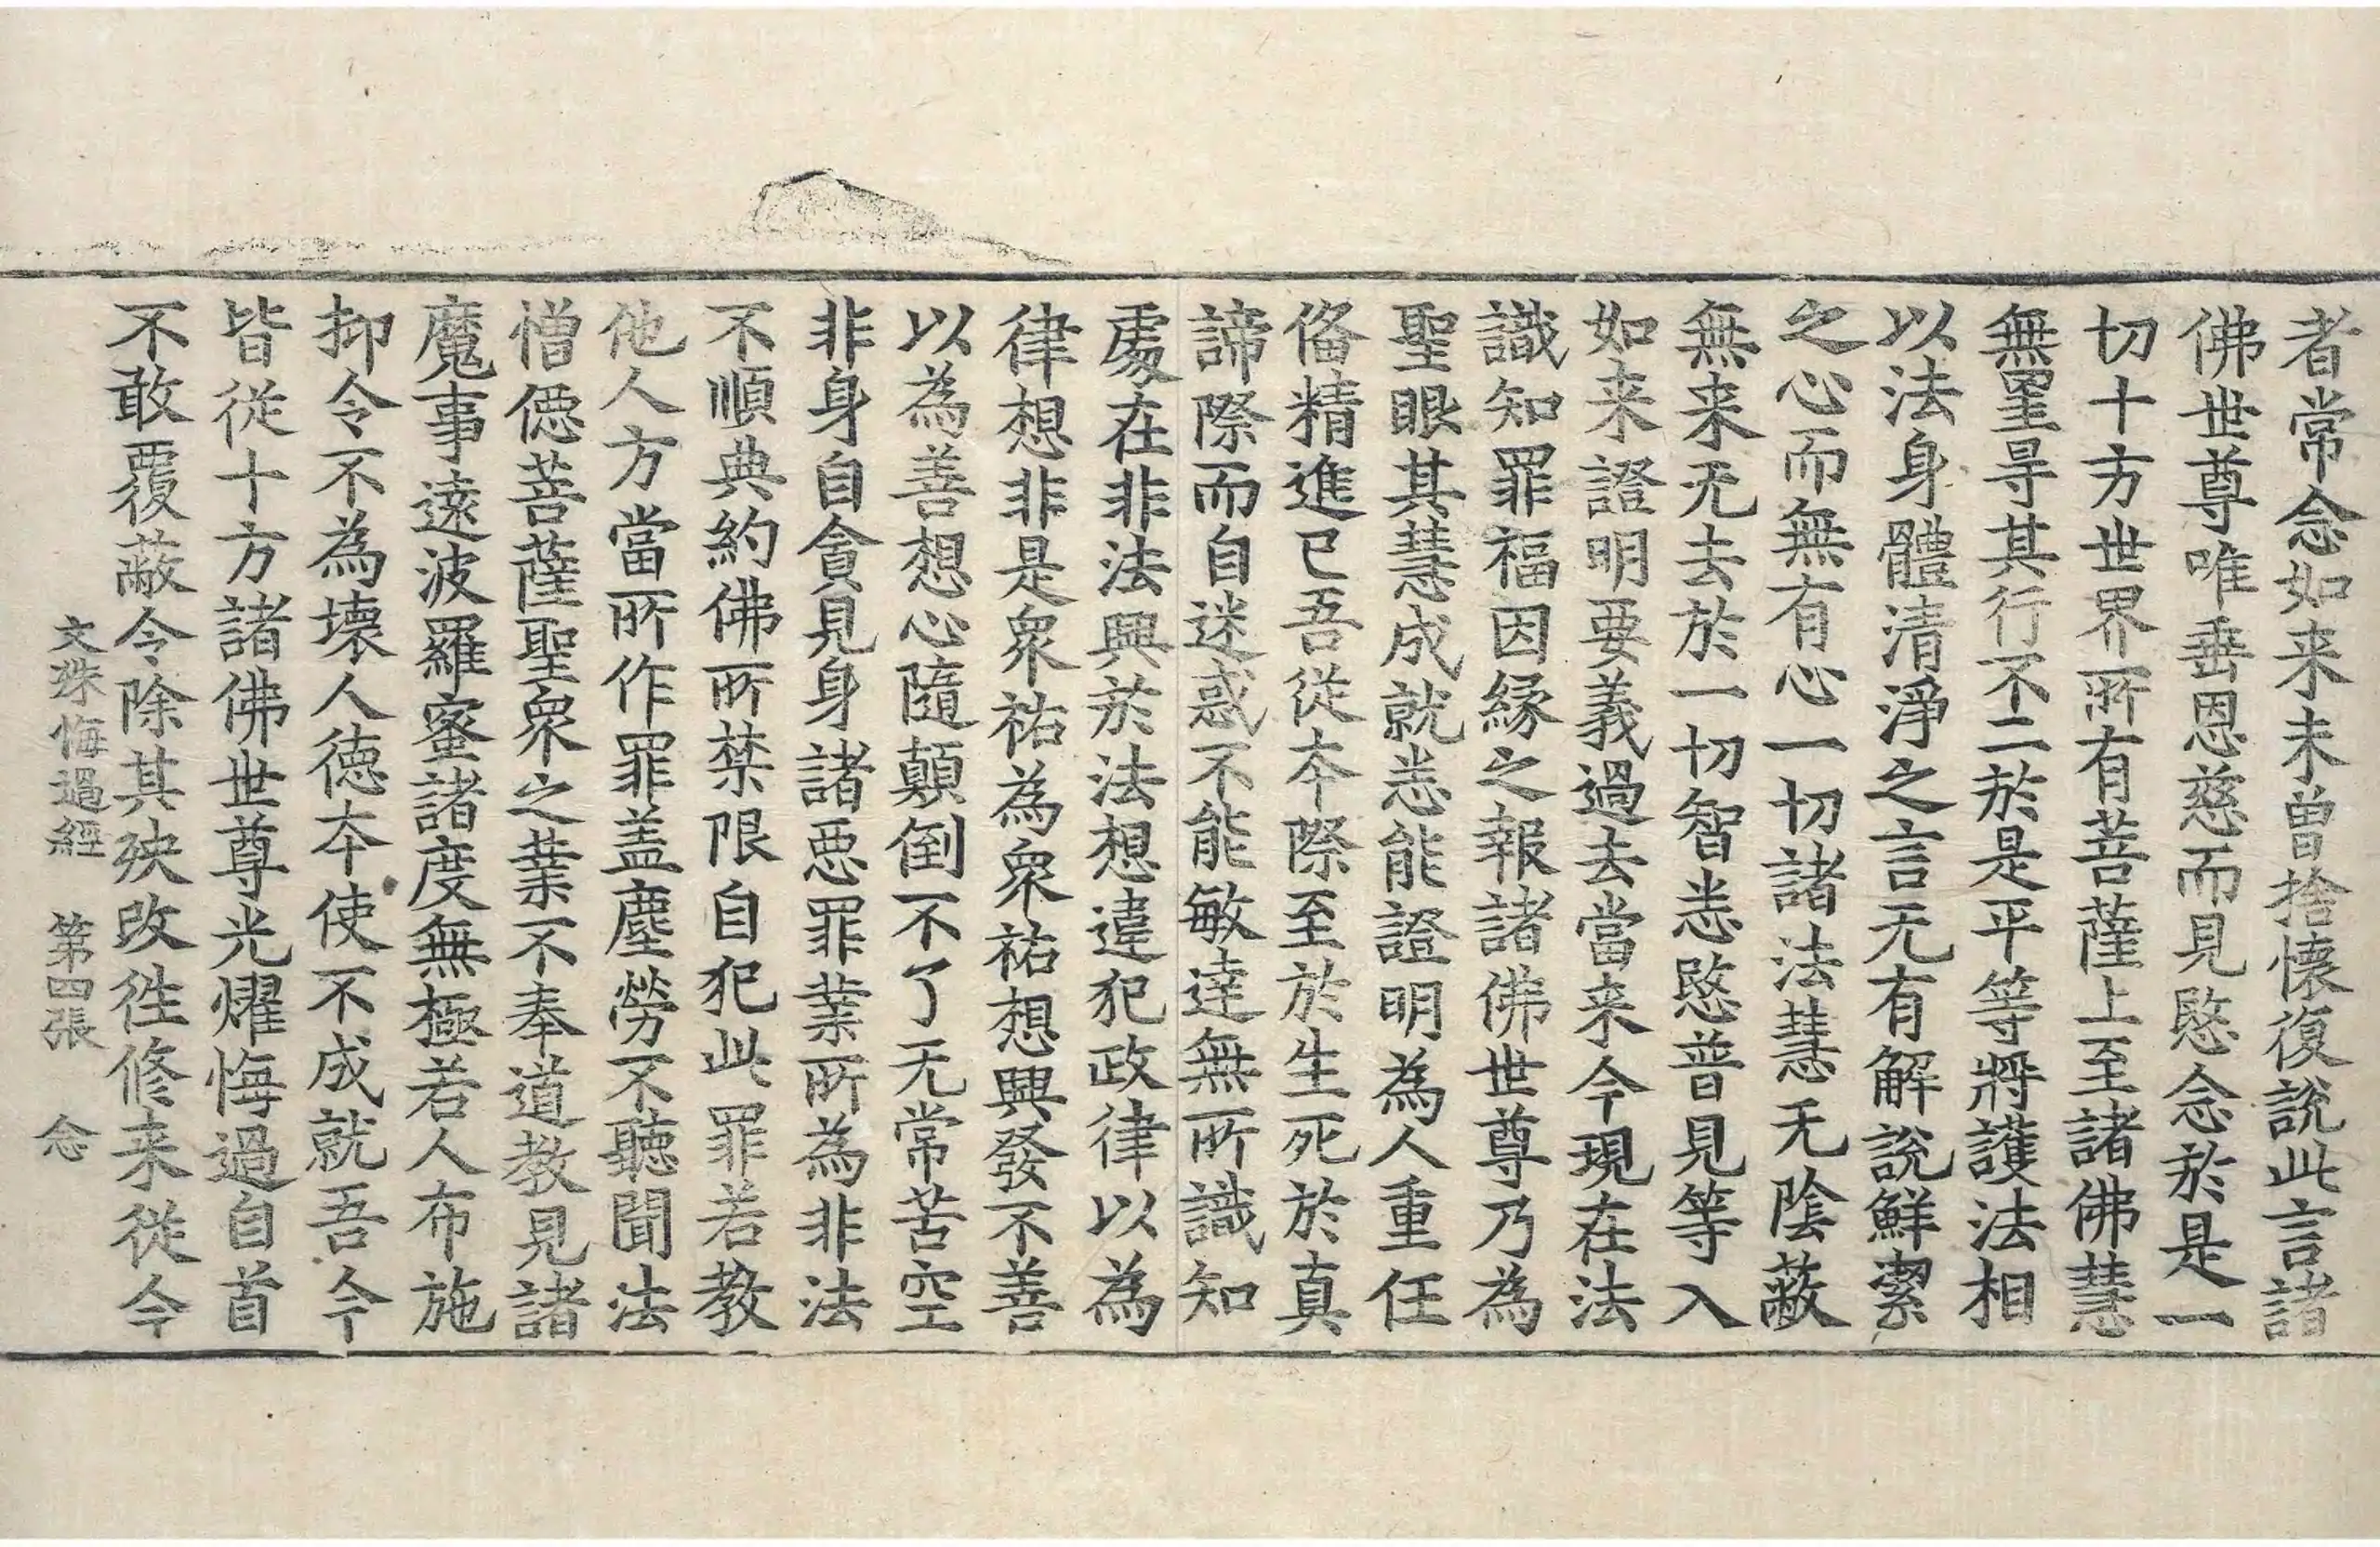 者常念如来未曾捨懷復說此言諸
佛世尊唯垂恩慈而見愍念於是一
切十方世界所有菩薩上至諸佛慧
無罣㝵其行不二於是平等將護法相
以法身體清淨之言无有解說鮮潔
之心而無有心一切諸法慧无陰蔽
無来无去於一切智悉愍普見等入
如来證明要義過去當来今現在法
識知罪福因緣之報諸佛世尊乃為
聖眼其慧成就悉能證明為人重任
俻精進已吾從夲際至於生死於真
諦際而自迷惑不能敏達無所識知
處在非法興於法想違犯政律以為
律想非是衆祐為衆祐想興發不善
以為善想心隨顛倒不了无常苦空
非身自貪見身諸惡罪業所為非法
不順典約佛所禁限自犯此罪若教
他人方當所作罪盖塵勞不聽聞法
憎僫菩薩聖衆之業不奉道教見諸
魔事遠波羅蜜諸度無極若人布施
抑令不為壞人德夲使不成就吾今
皆從十方諸佛世尊光耀悔過自首
不敢覆蔽令除其殃改徃修来從今
文殊悔過經 第四張 念